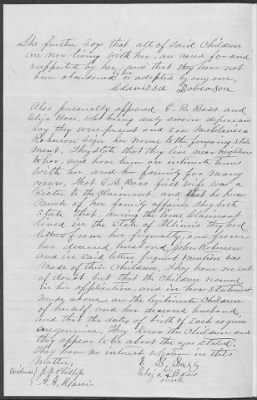 She further says that all of said Children
are now living with her, are cared for and
supported by her, and that they have not
been abandoned or adopted by any one,
Clarissa Roberson
Also personally appeared, E. B. Bass and
Eliza Bass, who being duly sworn depose and
say they were present and saw Mrs Clarissa
Roberson sign her name to the foregoing state-
ment, They state that they live near neighbors
to her, and have been on intimate terms
with her and her family for many
years, that E. B. Bass first wife was a
sister to the Claimant, and that he knew
much of her family affairs, they both
state that, during the time Claimant
lived in the State of Illinois they had
letters from her frequently, and from
her deceased husband John Roberson
and in said letters frequent mention was
made of their Children, They have no sort
of doubt but that the Children named
in her application, and in her statement
made above are the legitimate Children
of herself and her deceased husband,
and that the dates of birth of each as given
are genuine, They know the Children and
they appear to be about the ages stated.
They have no interest whatever in this
Matter,
E. B. Bass
Eliza Bass
mark
J. J. Phillips
A. A. Harris